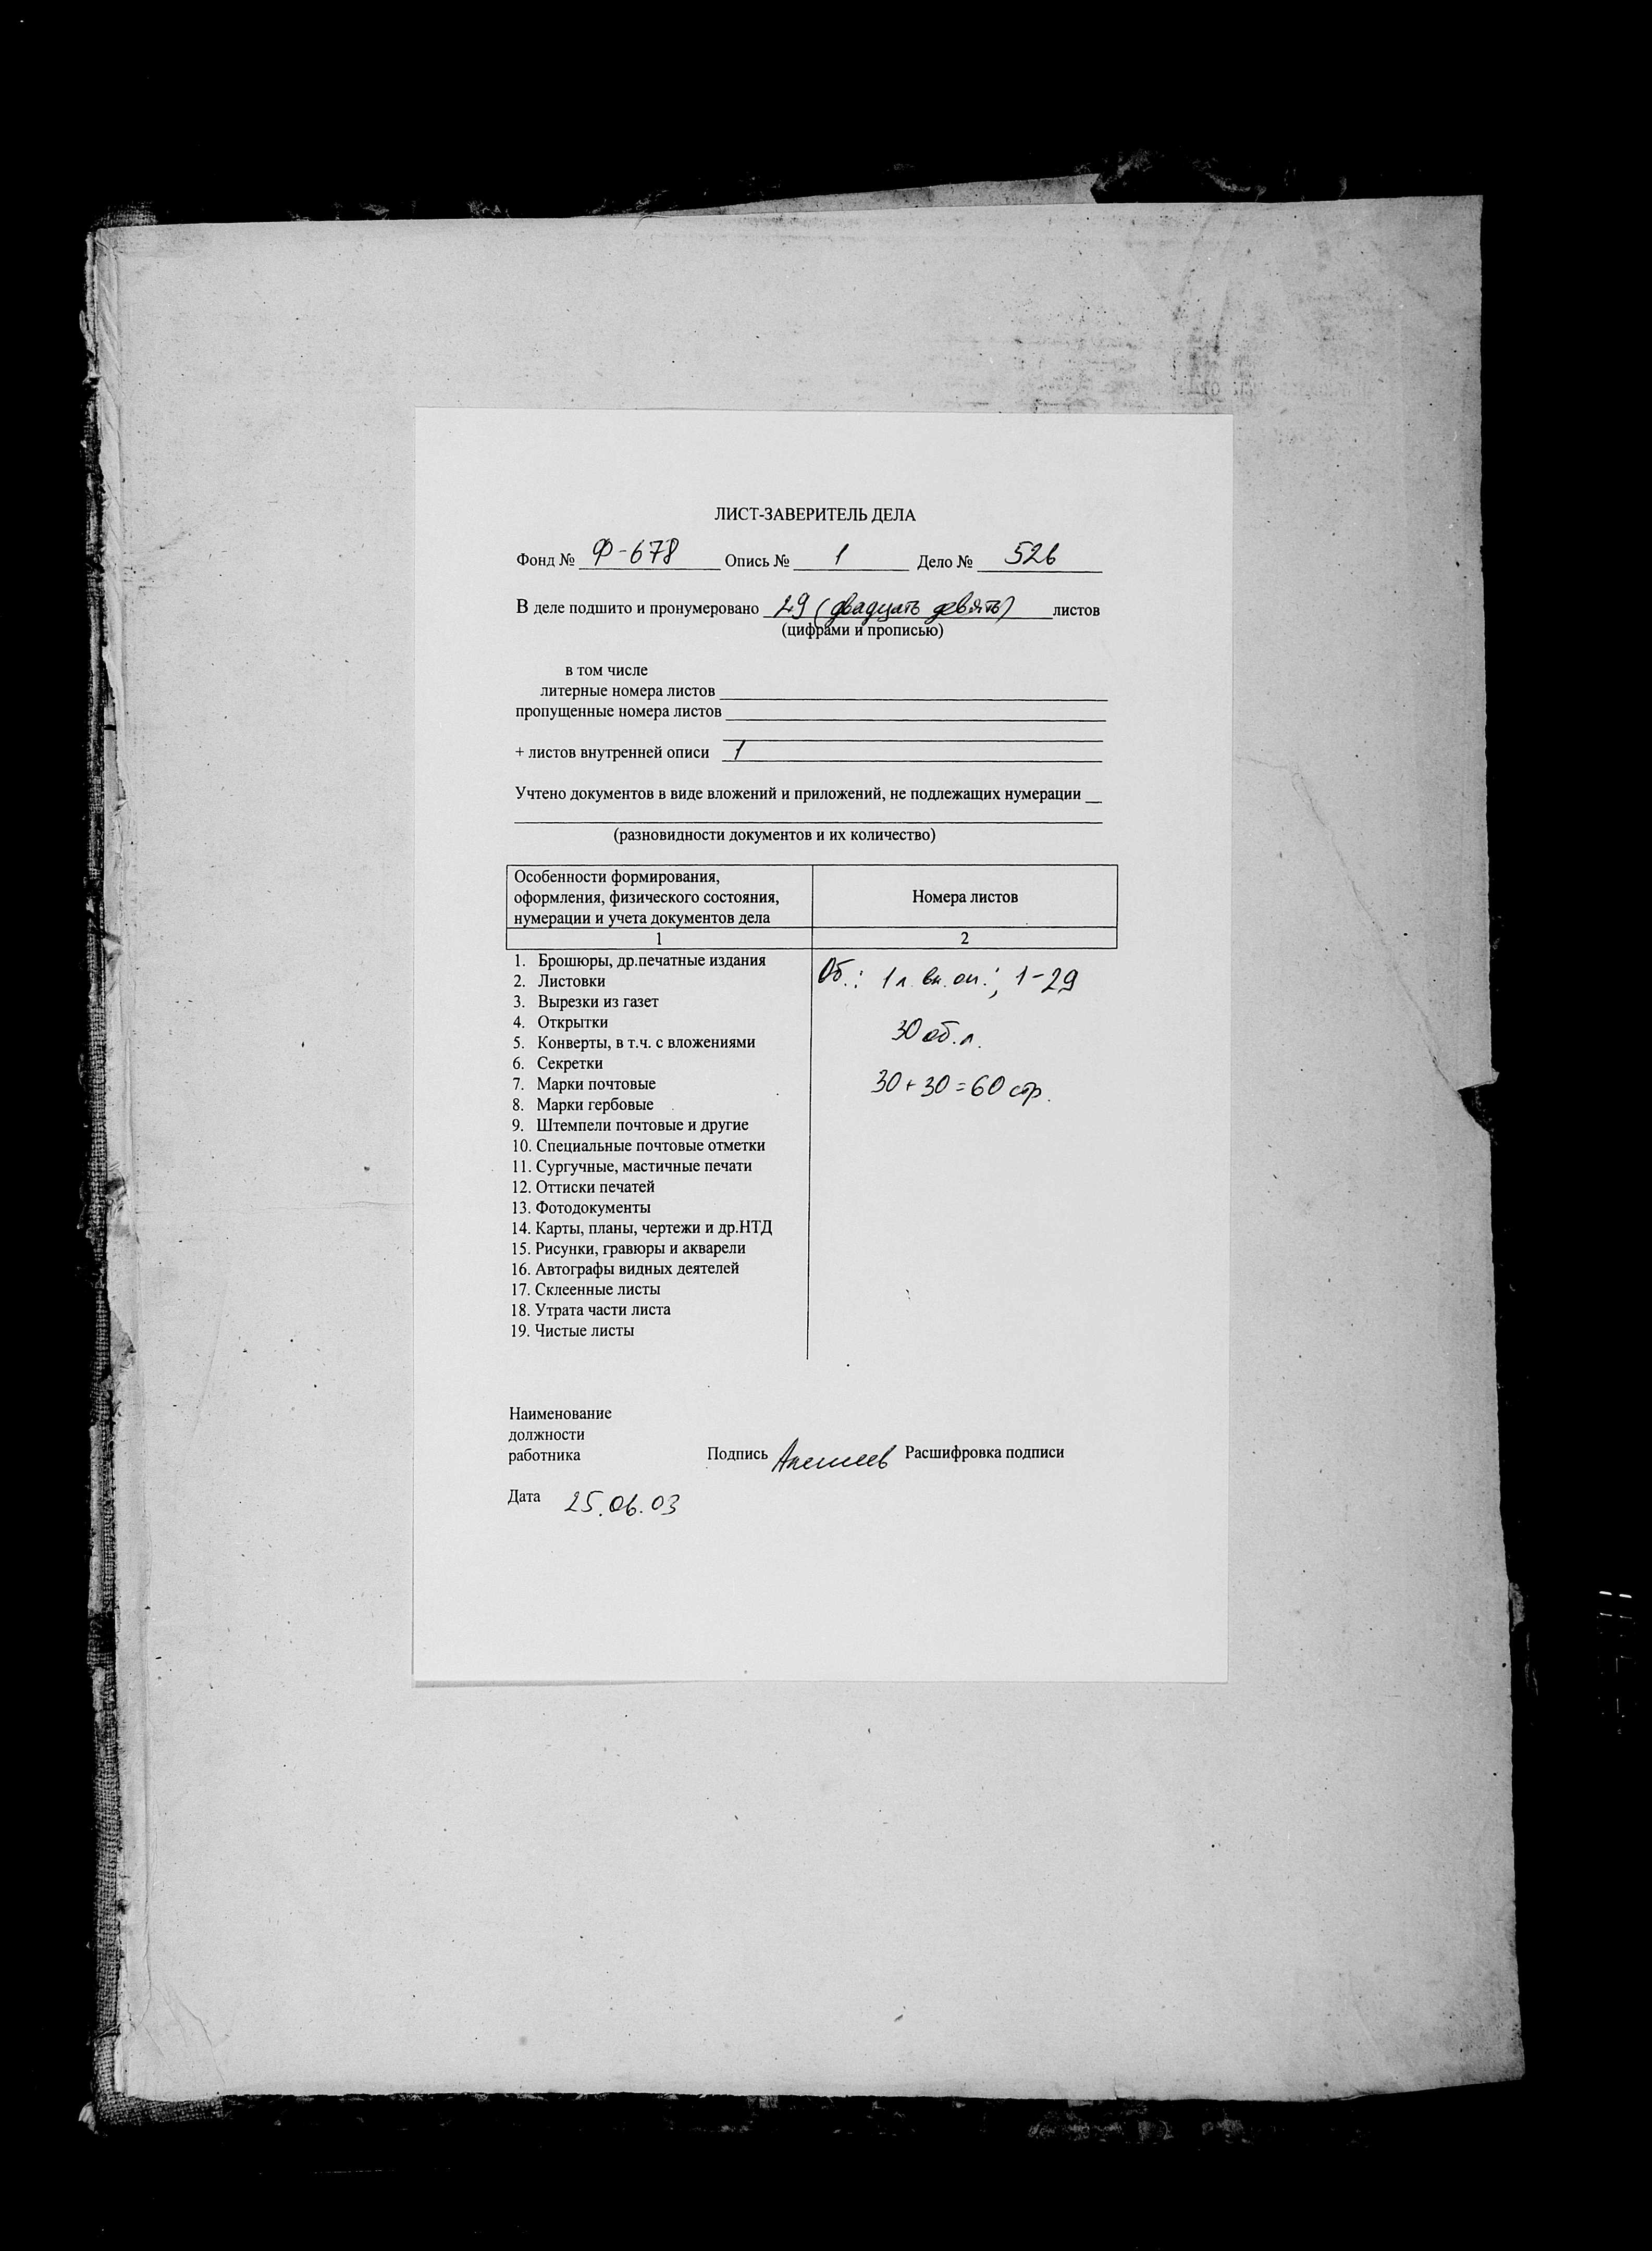 ЛИСТ-ЗАВЕРИТЕЛЬ ДЕЛА
Фонд № Ф-678 Опись № 1 Дело № 526
В деле подшито и пронумеровано 29 (двадцать девять) листов
(цифрами и прописью)
в том числе
литерные номера листов
пропущенные номера листов
+ листов внутренней описи 1
Учтено документов в виде вложений и приложений, не подлежащих нумерации
(разновидности документов и их количество)
Особенности формирования,
оформления, физического состояния,
нумерации и учета документов дела
Номера листов
1 2
1. Брошюры, др.печатные издания
2. Листовки
3. Вырезки из газет
4. Открытки
5. Конверты, в т.ч. с вложениями
6. Секретки
7. Марки почтовые
8. Марки гербовые
9. Штемпели почтовые и другие
10. Специальные почтовые отметки
11. Сургучные, мастичные печати
12. Оттиски печатей
13. Фотодокументы
14. Карты, планы, чертежи и др.НТД
15. Рисунки, гравюры и акварели
16. Автографы видных деятелей
17. Склеенные листы
18. Утрата части листа
19. Чистые листы
Об.: 1 л. вн. оп.; 1-29
30 об. л.
30+30=60 стр.
Наименование
должности
работника Подпись Расшифровка подписи
Дата 25.06.03